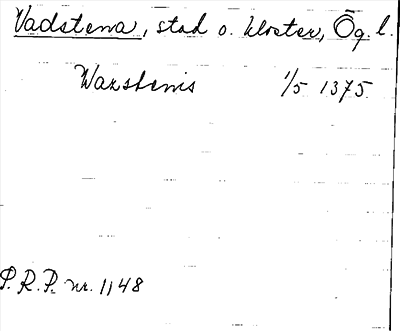 Vadstena, stad o. kloster, Ög. l.
Warstenis 1/5 1375.
P. R. P. nr. 1148